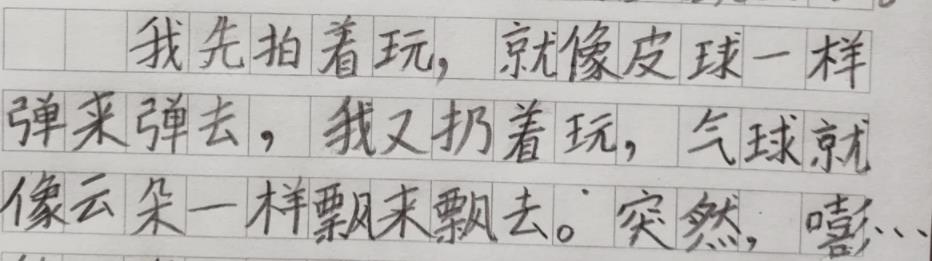 我先拍着玩，就像皮球一样
弹来弹去，我又扔着玩，气球就
像云朵一样飘来飘去。突然，嘭…